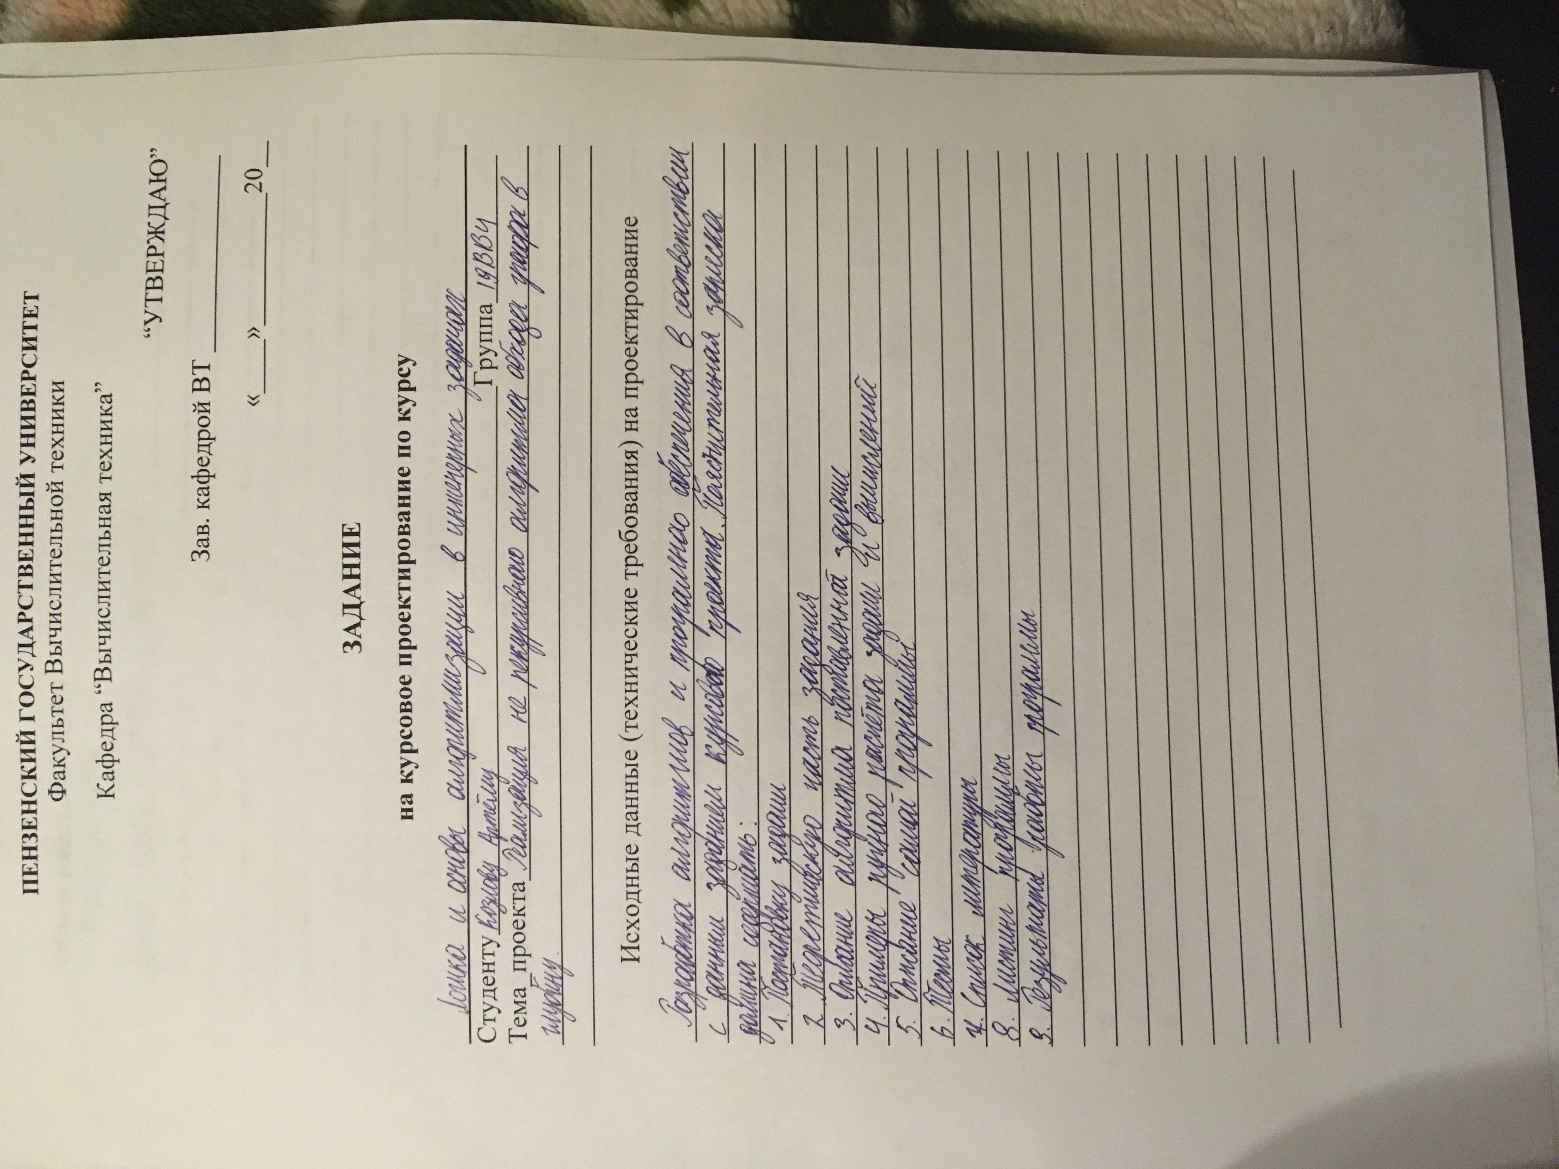 ПЕНЗЕНСКИЙ ГОСУДАРСТВЕННЫЙ УНИВЕРСИТЕТ
Факультет Вычислительной техники
Кафедра “Вычислительная техника”
“УТВЕРЖДАЮ”
Зав. кафедрой ВТ
«___»____________20__
ЗАДАНИЕ
на курсовое проектирование по курсу
Логика и основы алгоритмизации в инженерных задачах
Студенту Козлову Артёму Группа 19ВВ4
Тема проекта Реализация не рекурсивного алгоритма обхода графа в
глубину
Исходные данные (технические требования) на проектирование
Разработка алгоритмов и программного обеспечения в соответствии
с данным заданием курсового проекта. Пояснительная записка
должна содержать:
1. Постановку задачи
2. Теоретическую часть задания
3. Описание алгоритма поставленной задачи
4. Примеры ручного расчёта задачи и вычислений
5. Описание самой программы
6. Тесты
7. Список литературы
8. Листинг программы
9. Результаты работы программы